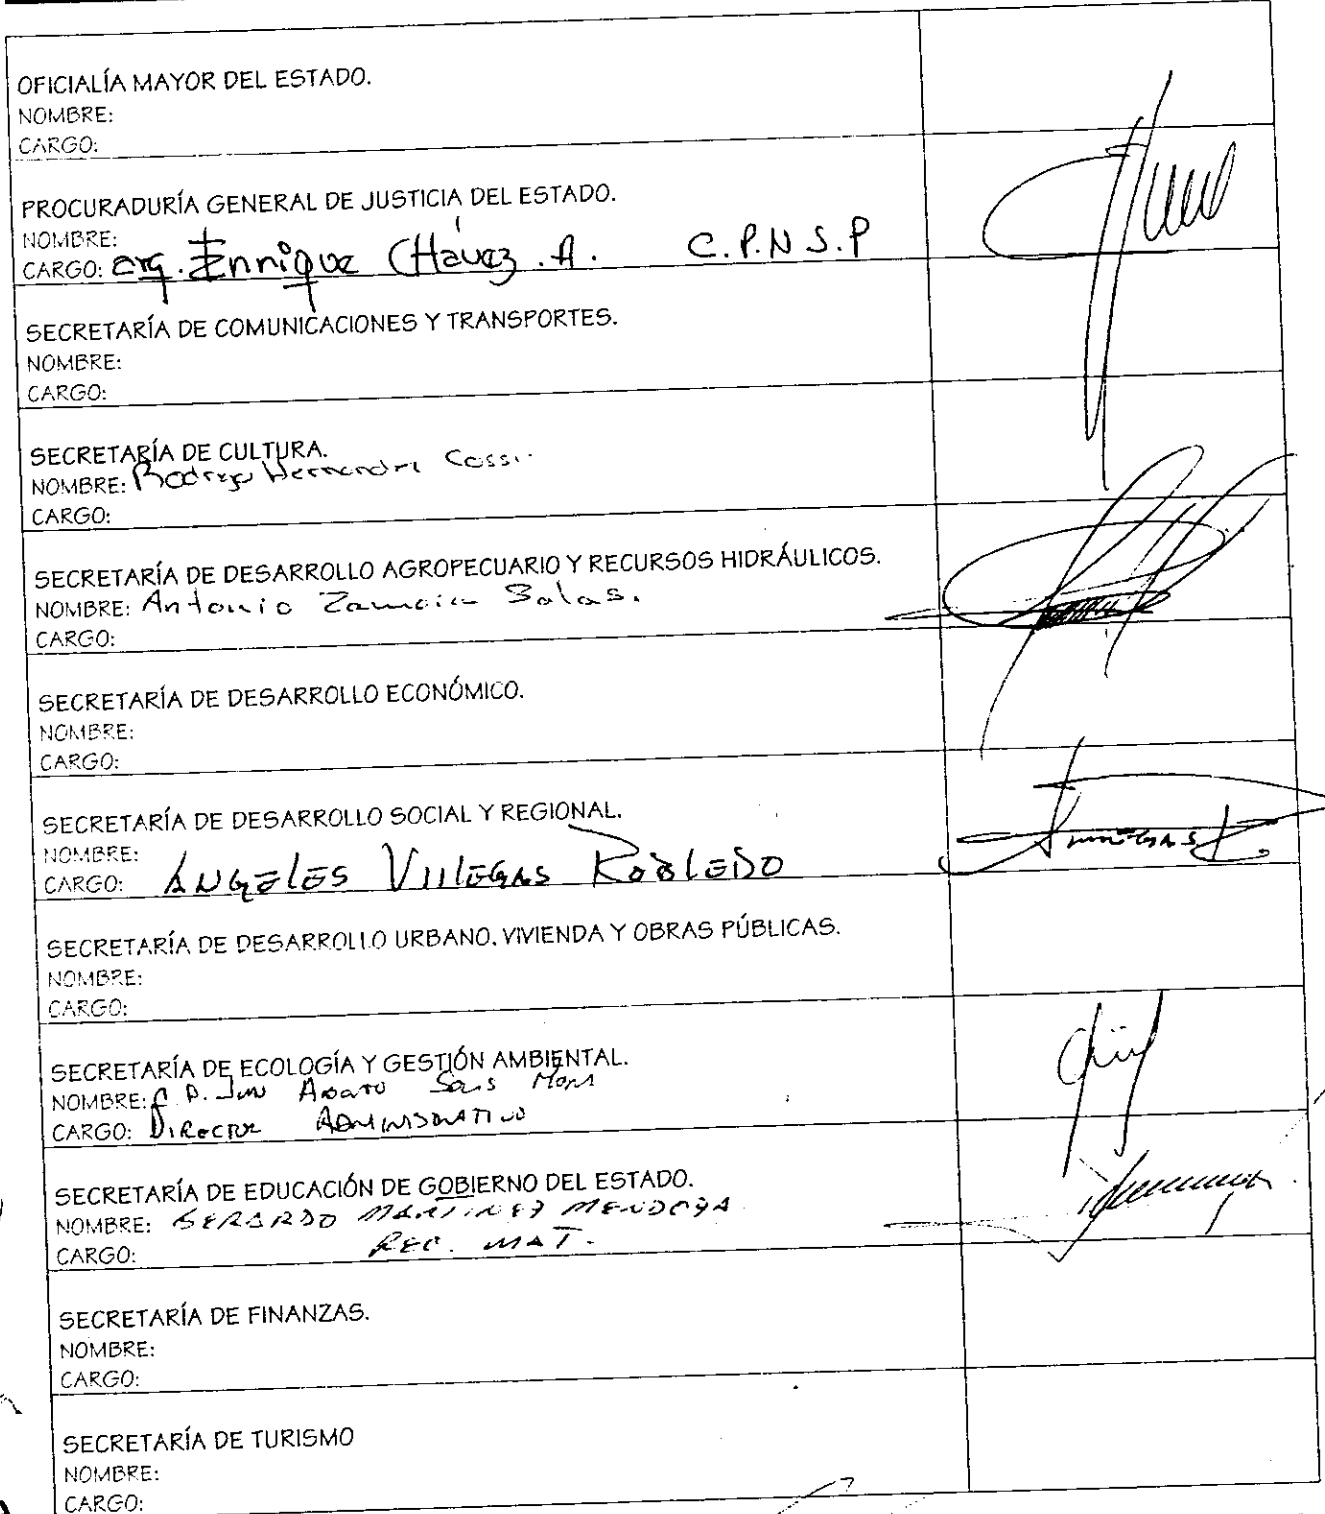 OFICIALÍA MAYOR DEL ESTADO.
NOMBRE:
CARGO:
PROCURADURÍA GENERAL DE JUSTICIA DEL ESTADO.
NOMBRE:
CARGO: arq. Enrique CHávez .A. C.P.N.S.P
SECRETARÍA DE COMUNICACIONES Y TRANSPORTES.
NOMBRE:
CARGO:
SECRETARÍA DE CULTURA.
NOMBRE: Rodrigo Hernandez
CARGO:
SECRETARÍA DE DESARROLLO AGROPECUARIO Y RECURSOS HIDRÁULICOS.
NOMBRE: Antonio Zamora Salas.
CARGO:
SECRETARÍA DE DESARROLLO ECONÓMICO.
NOMBRE:
CARGO:
SECRETARÍA DE DESARROLLO SOCIAL Y REGIONAL.
NOMBRE:
CARGO: ANGELES VILLEGAS ROBLEDO
SECRETARÍA DE DESARROLLO URBANO, VIVIENDA Y OBRAS PÚBLICAS.
NOMBRE:
CARGO:
SECRETARÍA DE ECOLOGÍA Y GESTIÓN AMBIENTAL.
NOMBRE: C.P.
CARGO: DIRECTOR ADMINISTRATIVO
SECRETARÍA DE EDUCACIÓN DE GOBIERNO DEL ESTADO.
NOMBRE: GERARDO MARTINEZ MENDOZA
REC. MAT.
CARGO:
SECRETARÍA DE FINANZAS.
NOMBRE:
CARGO:
SECRETARÍA DE TURISMO
NOMBRE:
CARGO: